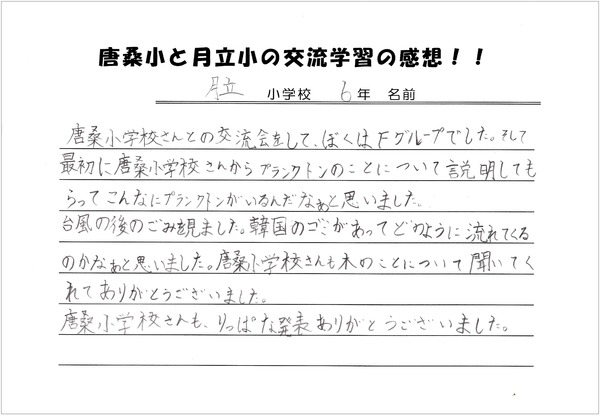 唐桑小と月立小の交流学習の感想！！
月立 小学校 6年 名前
唐桑小学校さんとの交流会をして、ぼくはFグループでした。そして
最初に唐桑小学校さんからプランクトンのことについて説明しても
らってこんなにプランクトンがいるんだなぁと思いました。
台風の後のごみを見ました。韓国のゴミがあってどのように流れてくる
のかなぁと思いました。唐桑小学校さんも木のことについて聞いてく
れてありがとうございました。
唐桑小学校さんも、りっぱな発表ありがとうございました。